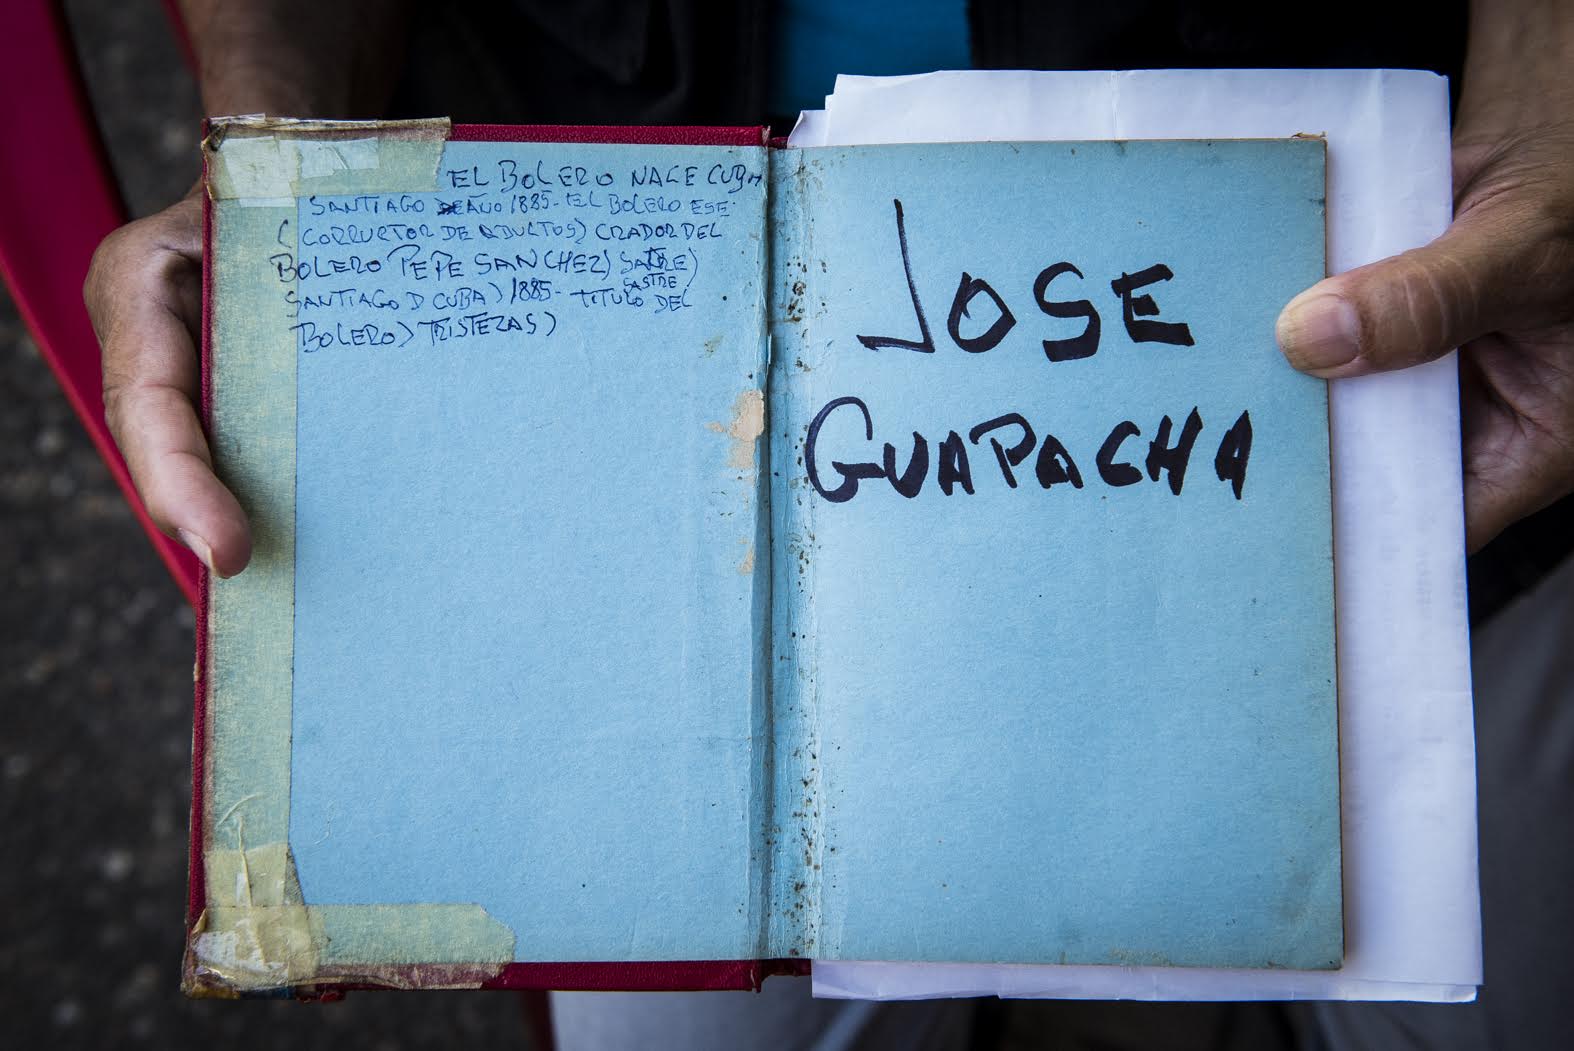 EL BOLERO NACE CUBA
SANTIAGO DE AÑO 1885- EL BOLERO ESE
(CORRUCTOR DE ADULTOS) CRADOR DEL
BOLERO PEPE SANCHEZ) SATRE)
SASTRE
SANTIAGO D CUBA) 1885- TITULO DEL
BOLERO) TRISTEZAS)
JOSE
GUAPACHA